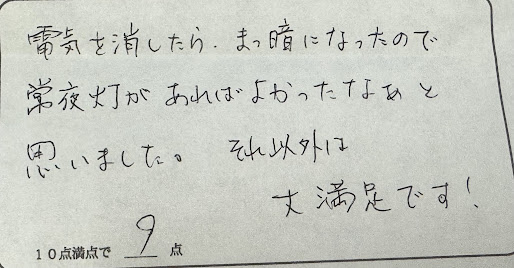 電気を消したら、まっ暗になったので
常夜灯が あればよかったなぁと
思いました。 それ以外は
大満足です!
10点満点で 9 点